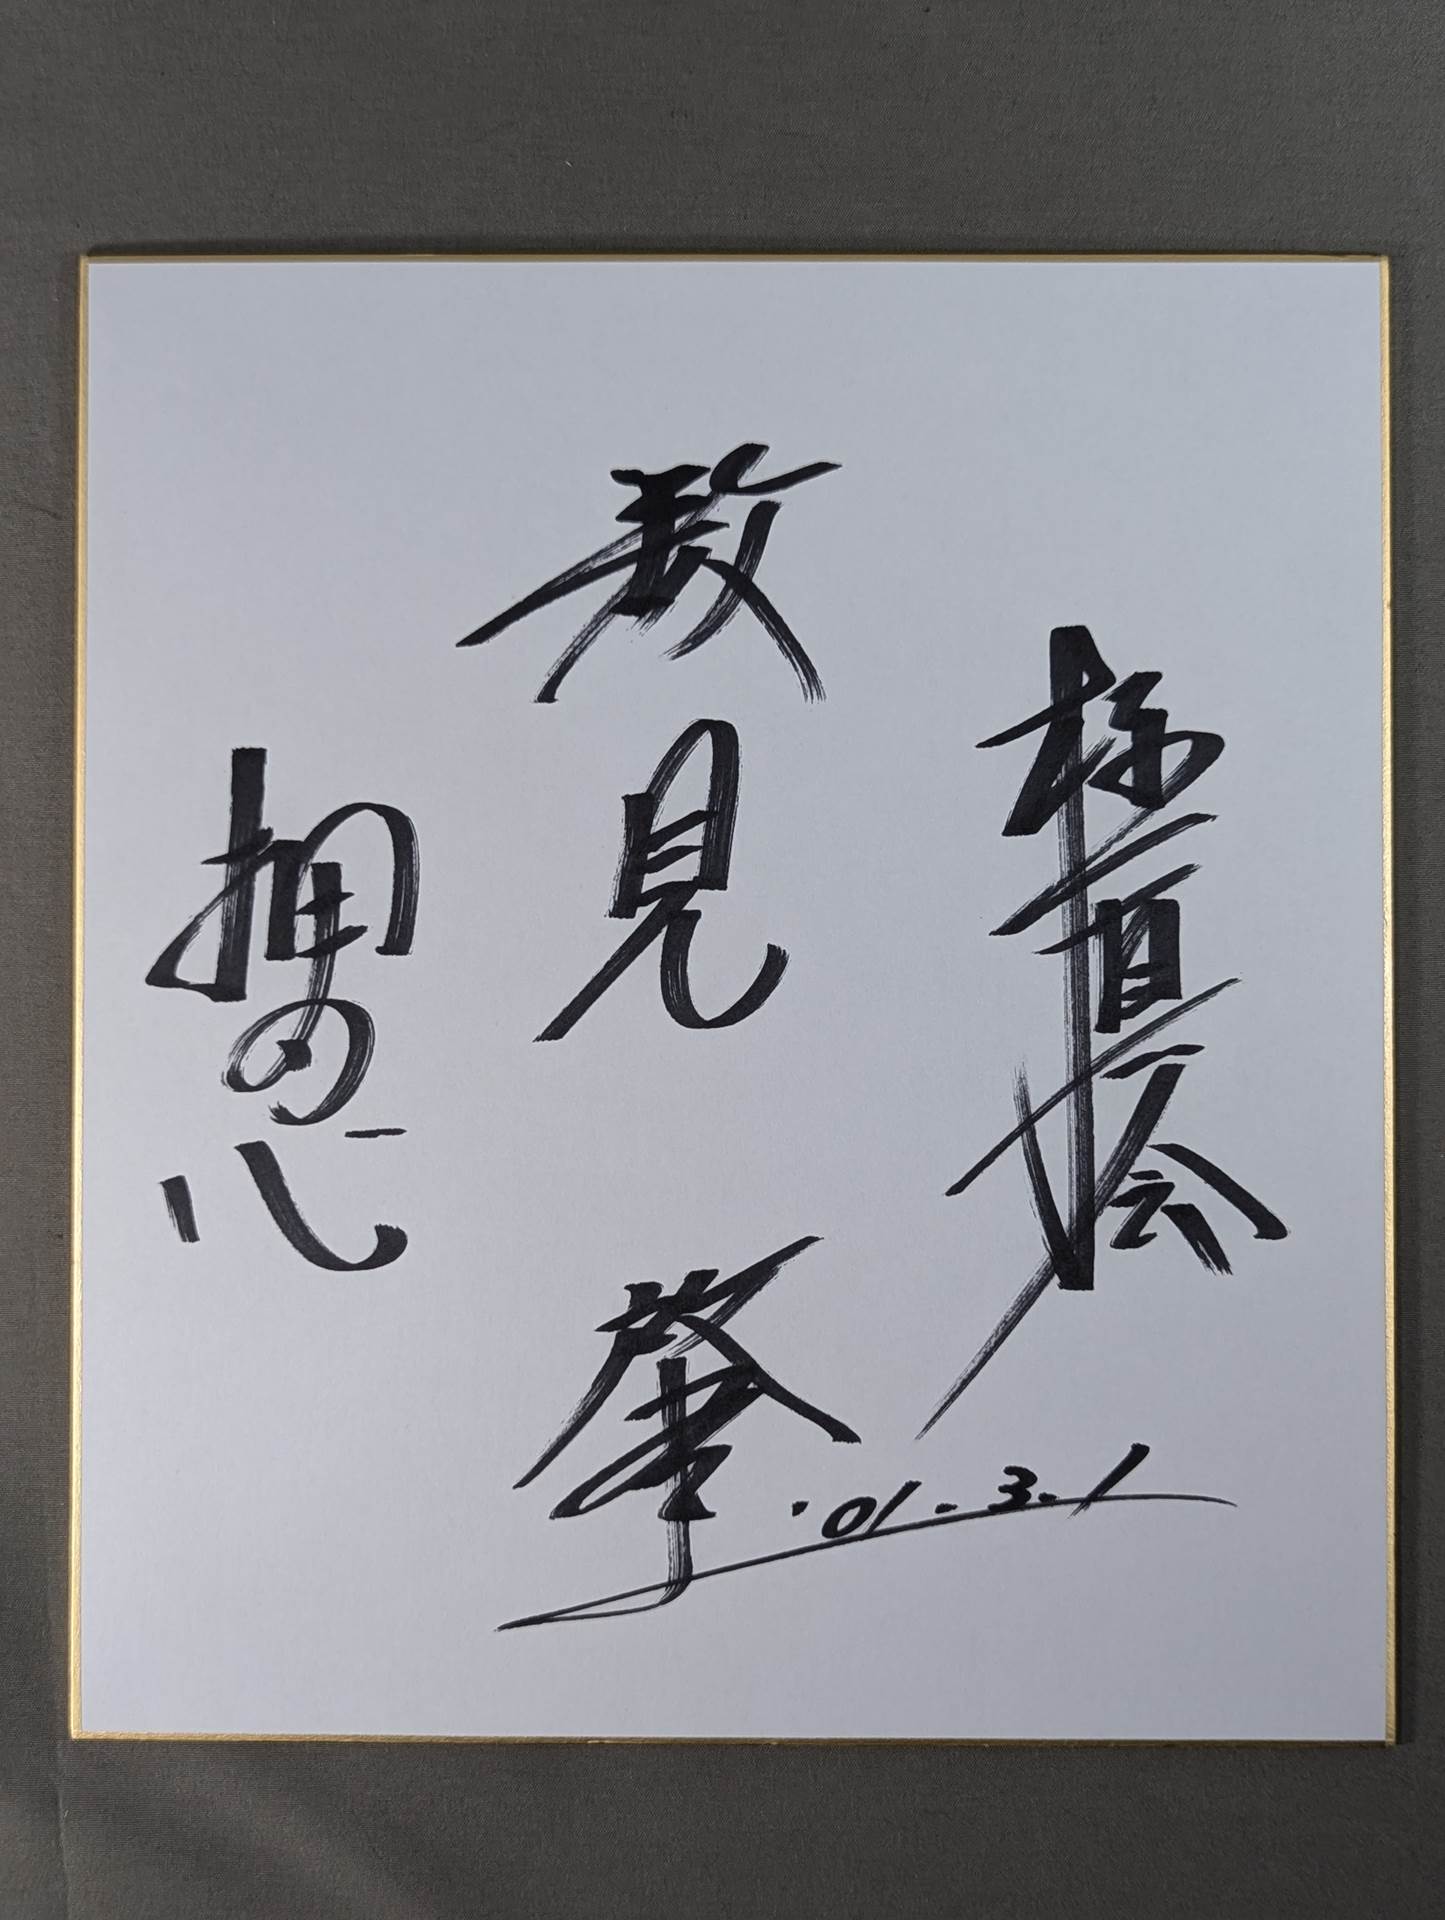 極真会
数見
肇
'01.3.1
押の心